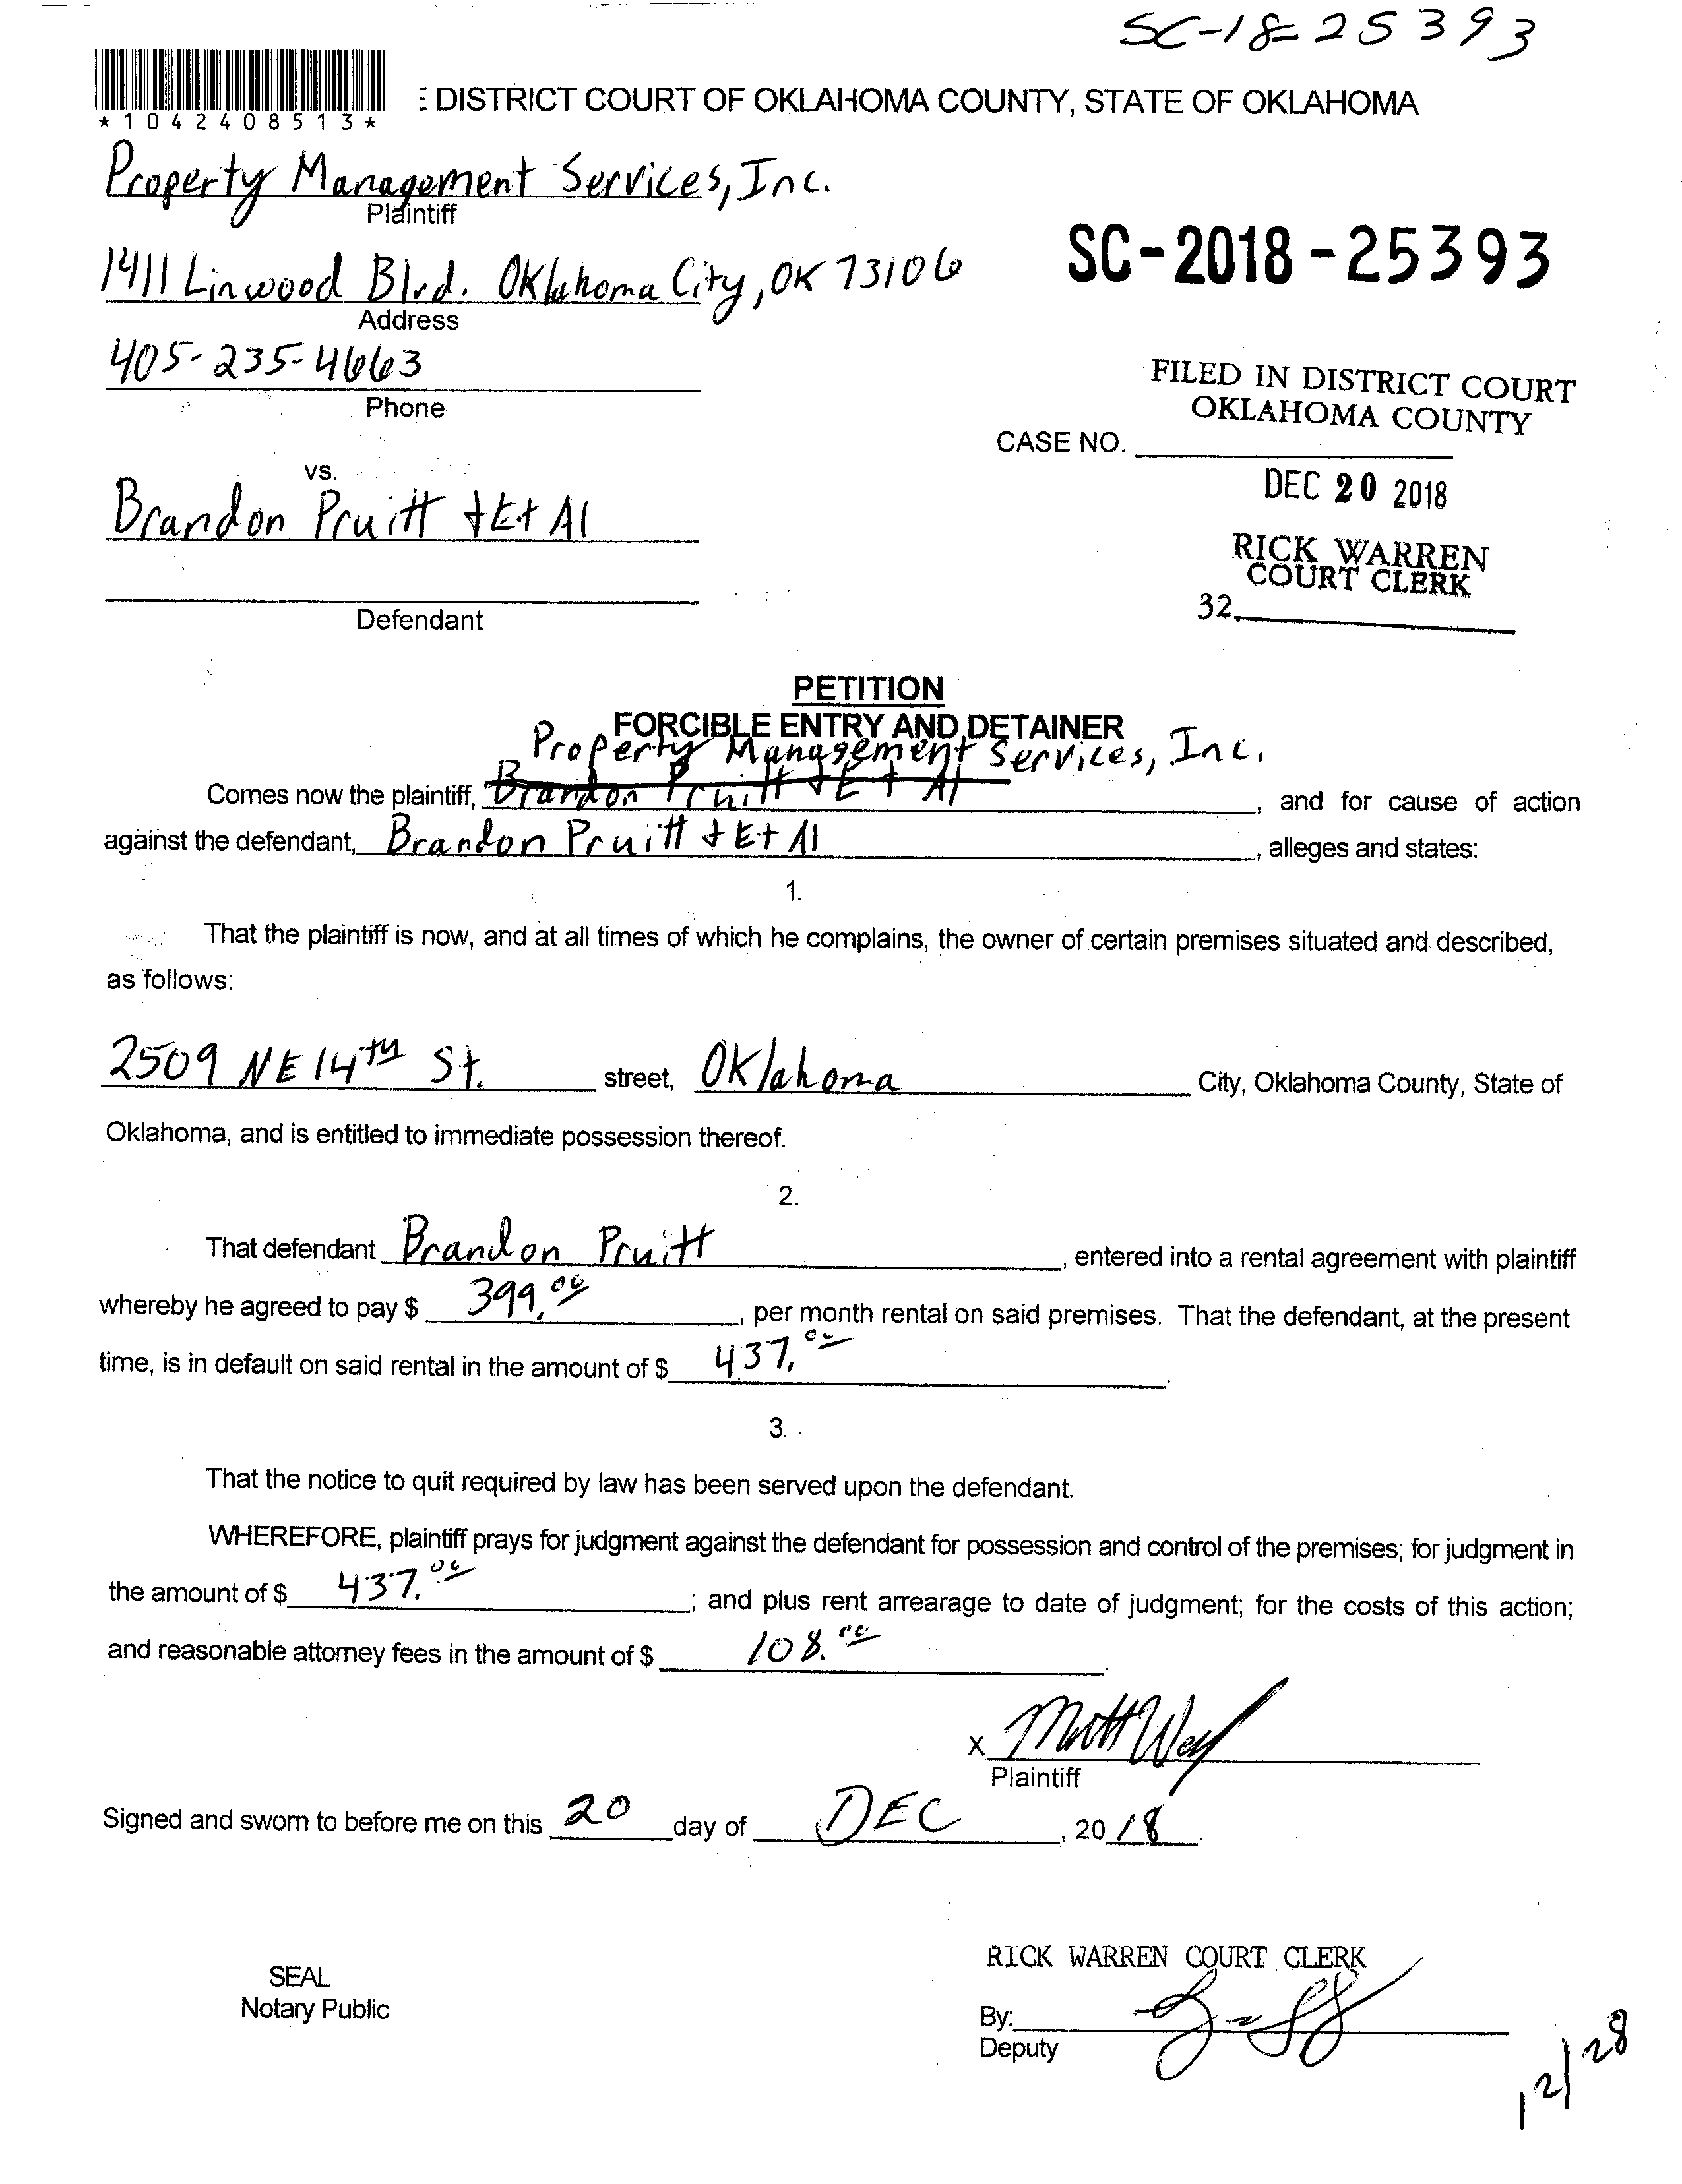 SC-18-25393
*1042408513*
: DISTRICT COURT OF OKLAHOMA COUNTY, STATE OF OKLAHOMA
Property Management Services, Inc.
Plaintiff
SC-2018-25393
1411 Linwood Blvd. Oklahoma City, OK 73106
Address
405-235-4663
Phone
FILED IN DISTRICT COURT
OKLAHOMA COUNTY
CASE NO.
vs.
DEC 20 2018
Brandon Pruitt + Et Al
RICK WARREN
COURT CLERK
32
Defendant
PETITION
FORCIBLE ENTRY AND DETAINER
Property Management Services, Inc.
Comes now the plaintiff, Brandon Pruitt + Et Al, and for cause of action
against the defendant, Brandon Pruitt + Et Al, alleges and states:
1.
That the plaintiff is now, and at all times of which he complains, the owner of certain premises situated and described,
as follows:
2509 NE 14th St. street, Oklahoma City, Oklahoma County, State of
Oklahoma, and is entitled to immediate possession thereof.
2.
That defendant Brandon Pruitt, entered into a rental agreement with plaintiff
whereby he agreed to pay $ 399.00, per month rental on said premises. That the defendant, at the present
time, is in default on said rental in the amount of $ 437.00.
3.
That the notice to quit required by law has been served upon the defendant.
WHEREFORE, plaintiff prays for judgment against the defendant for possession and control of the premises; for judgment in
the amount of $ 437.00; and plus rent arrearage to date of judgment; for the costs of this action;
and reasonable attorney fees in the amount of $ 108.00.
x Matt
Plaintiff
Signed and sworn to before me on this 20 day of DEC, 2018.
RICK WARREN COURT CLERK
SEAL
Notary Public
By:
Deputy
12/28